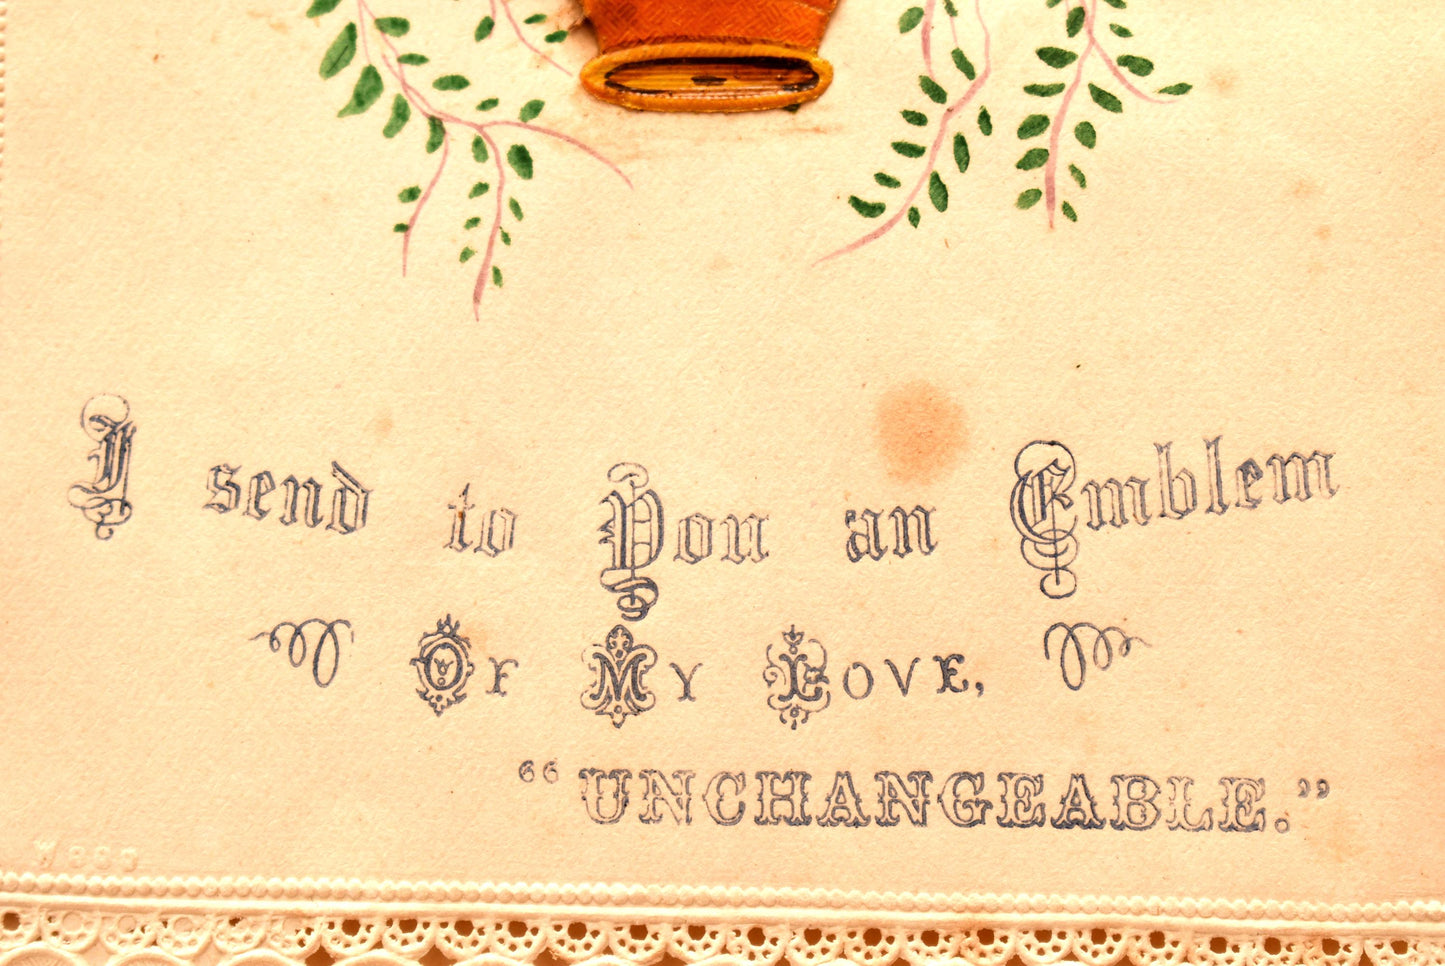 I send to You an Emblem
Of My Love,
“UNCHANGEABLE.”
WOOD